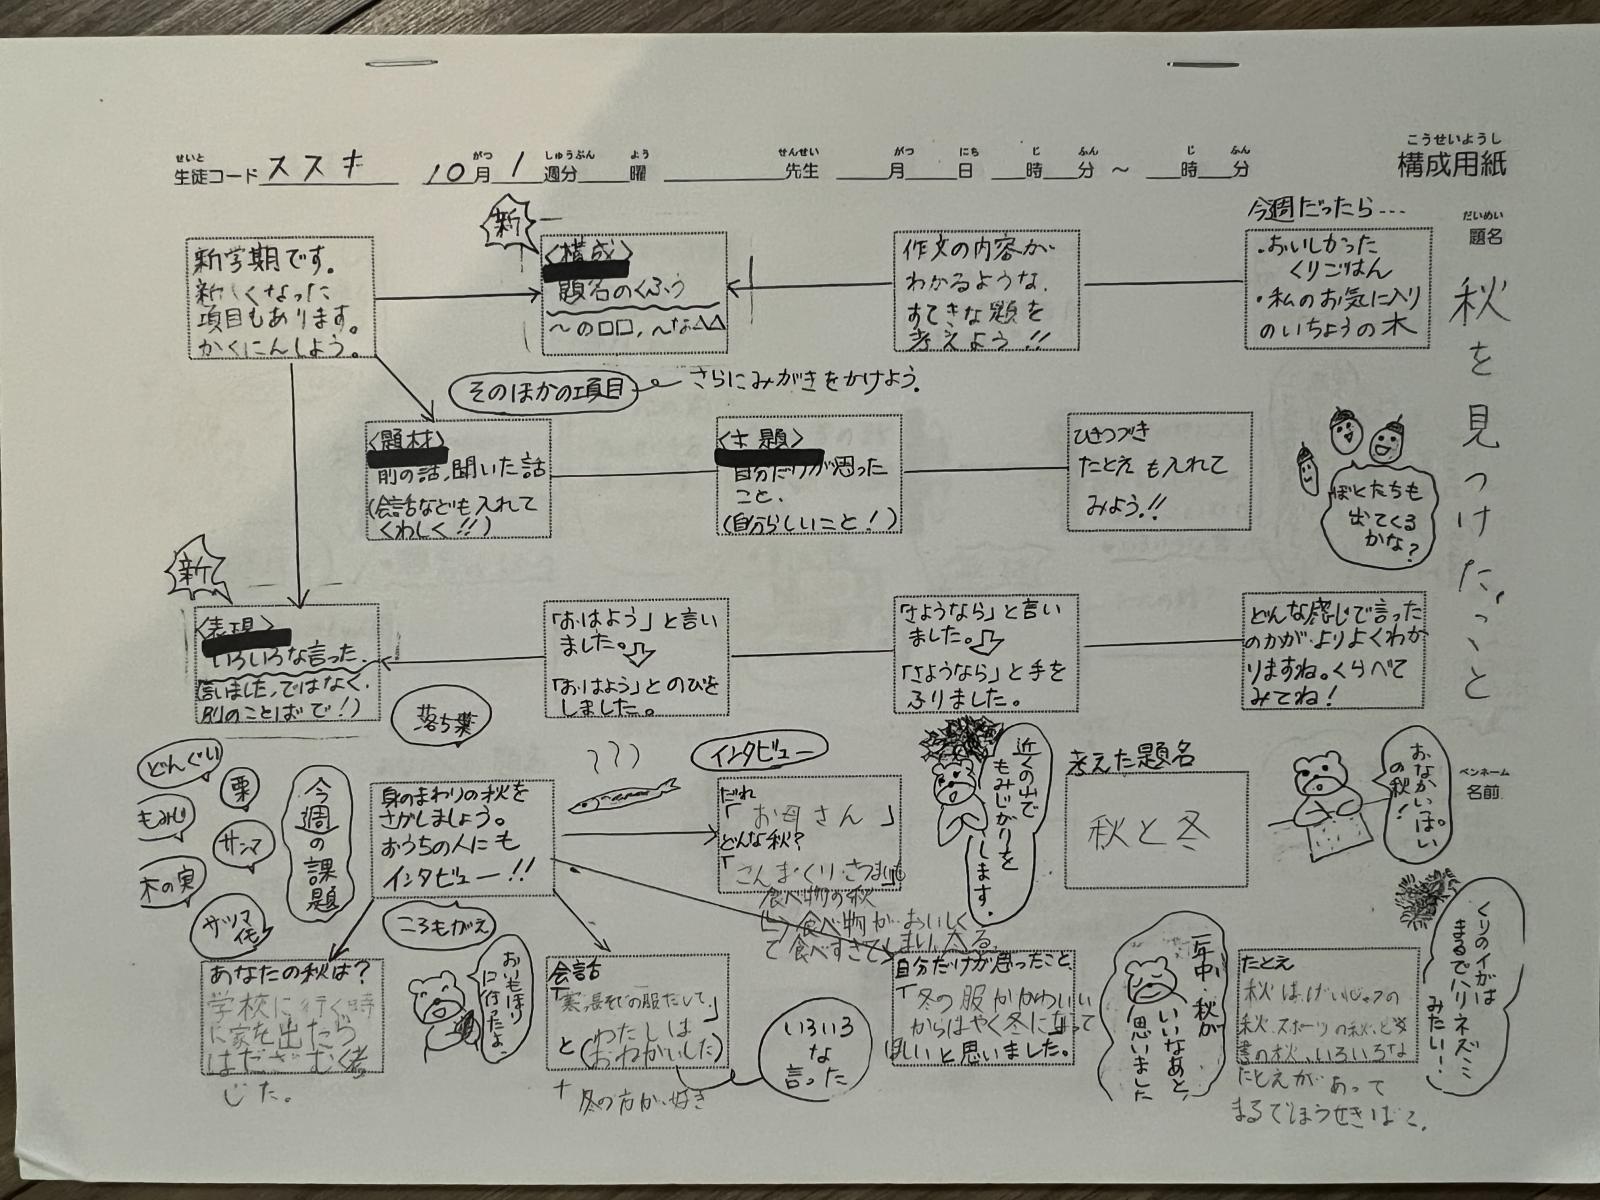 こうせいようし
構成用紙
せいと
生徒コード ススキ
がつ しゅうぶん よう
10月 1 週分 曜
せんせい
先生
がつ にち じ ふん じ ふん
月 日 時 分 ～ 時 分
だいめい
題名
秋を見つけたこと
新学期です。
新しくなった
項目もあります。
かくにんしよう。
新
〈構成〉
題名のくふう
～の□□,～な△△
作文の内容が
わかるような、
すてきな題を
考えよう!!
今週だったら…
・おいしかった
くりごはん
・私のお気に入り
のいちょうの木
そのほかの項目
さらにみがきをかけよう。
〈題材〉
前の話、聞いた話
(会話なども入れて
くわしく!!)
〈主題〉
自分だけが思った
こと、
(自分らしいこと!)
ひきつづき
たとえも入れて
みよう!!
ぼくたちも
出てくる
かな?
新
〈表現〉
いろいろな言った、
言いました,ではなく、
別のことばで!)
「おはよう」と言い
ました。
「おはよう」とのびを
しました。
「さようなら」と言い
ました。
「さようなら」と手を
ふりました。
どんな感じで言った
のかが、よりよくわか
りますね。くらべて
みてね!
落ち葉
どんぐり
栗
もみじ
サンマ
木の実
サツマ
イモ
今週の課題
身のまわりの秋を
さがしましょう。
おうちの人にも
インタビュー!!
インタビュー
だれ
「お母さん」
どんな秋?
「さんま・くり・さつまいも
食べ物の秋
食べ物がおいしく
て食べすぎてしまい、太る。
近くの山で
もみじがりを
します。
考えた題名
秋と冬
おなかいっぱい
の秋!
ペンネーム
名前
ころもがえ
おいもほり
に行ったよ。
あなたの秋は?
学校に行く時
に家を出たら
はだざむく感
じた。
会話
「寒い長そでの服だして。」
と(わたしは
おねがいした)
+ 冬の方が好き
いろいろ
な
言った
自分だけが思ったこと、
「冬の服がかわいい
からはやく冬になって
ほしいと思いました。
一年中、秋が
いいなあと、
思いました
たとえ
秋はげいじゅつの
秋、スポーツの秋、どく
書の秋、いろいろな
たとえがあって
まるでほうせきばこ。
くりのイガは
まるでハリネズミ
みたい!